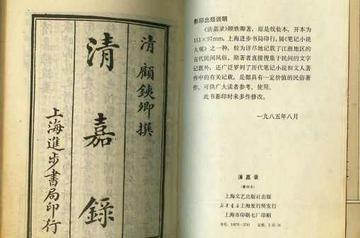 清 顧鉄卿撰
清嘉錄
上海進步書局印行
影印出版说明
《清嘉录》顾铁卿著，原是线装本，开本为
113×97mm，上海进步书局印行，属《笔记小说
大观》之一种，较为详尽地载了江南地区的
古代民间风俗。除著者直接搜集于民间的文字
记载外，还广泛罗列了历代笔记小说和文人著
作中的有关记载，是部具有一定价值的民俗著
作，可供广大读者参考，使用。
此书影印时未多作修改。
一九八五年八月
清嘉录
上海文艺出版社出版
新华书店上海发行所发行
上海市印刷七厂印刷